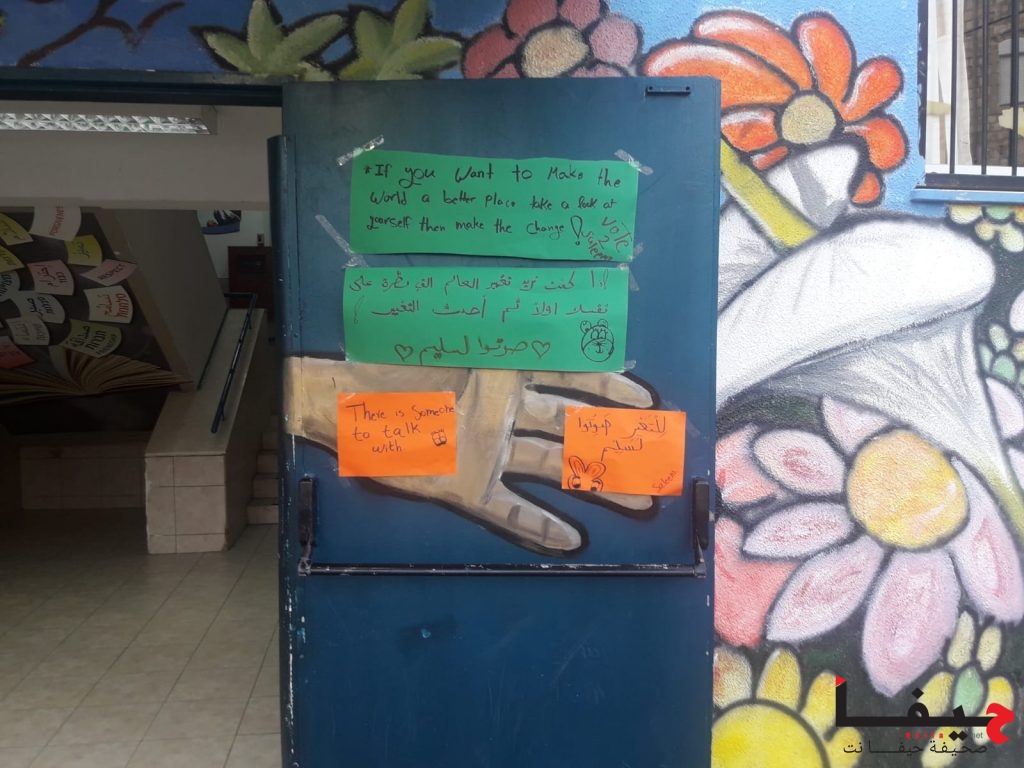 *If you Want to Make the
World a better place take a look at
yourself then make the change!
VOTE
2
Saleem
إذا كنت تريد تغيير العالم ألقِ نظرة على
نفسك أولاً ثم أحدث التغيير !
صوتوا لسليم
There is Someone
to talk
with
للتغير صوتوا
لسليم
Saleem
RESPECT
حيفا
net
صحيفة حيفا نت